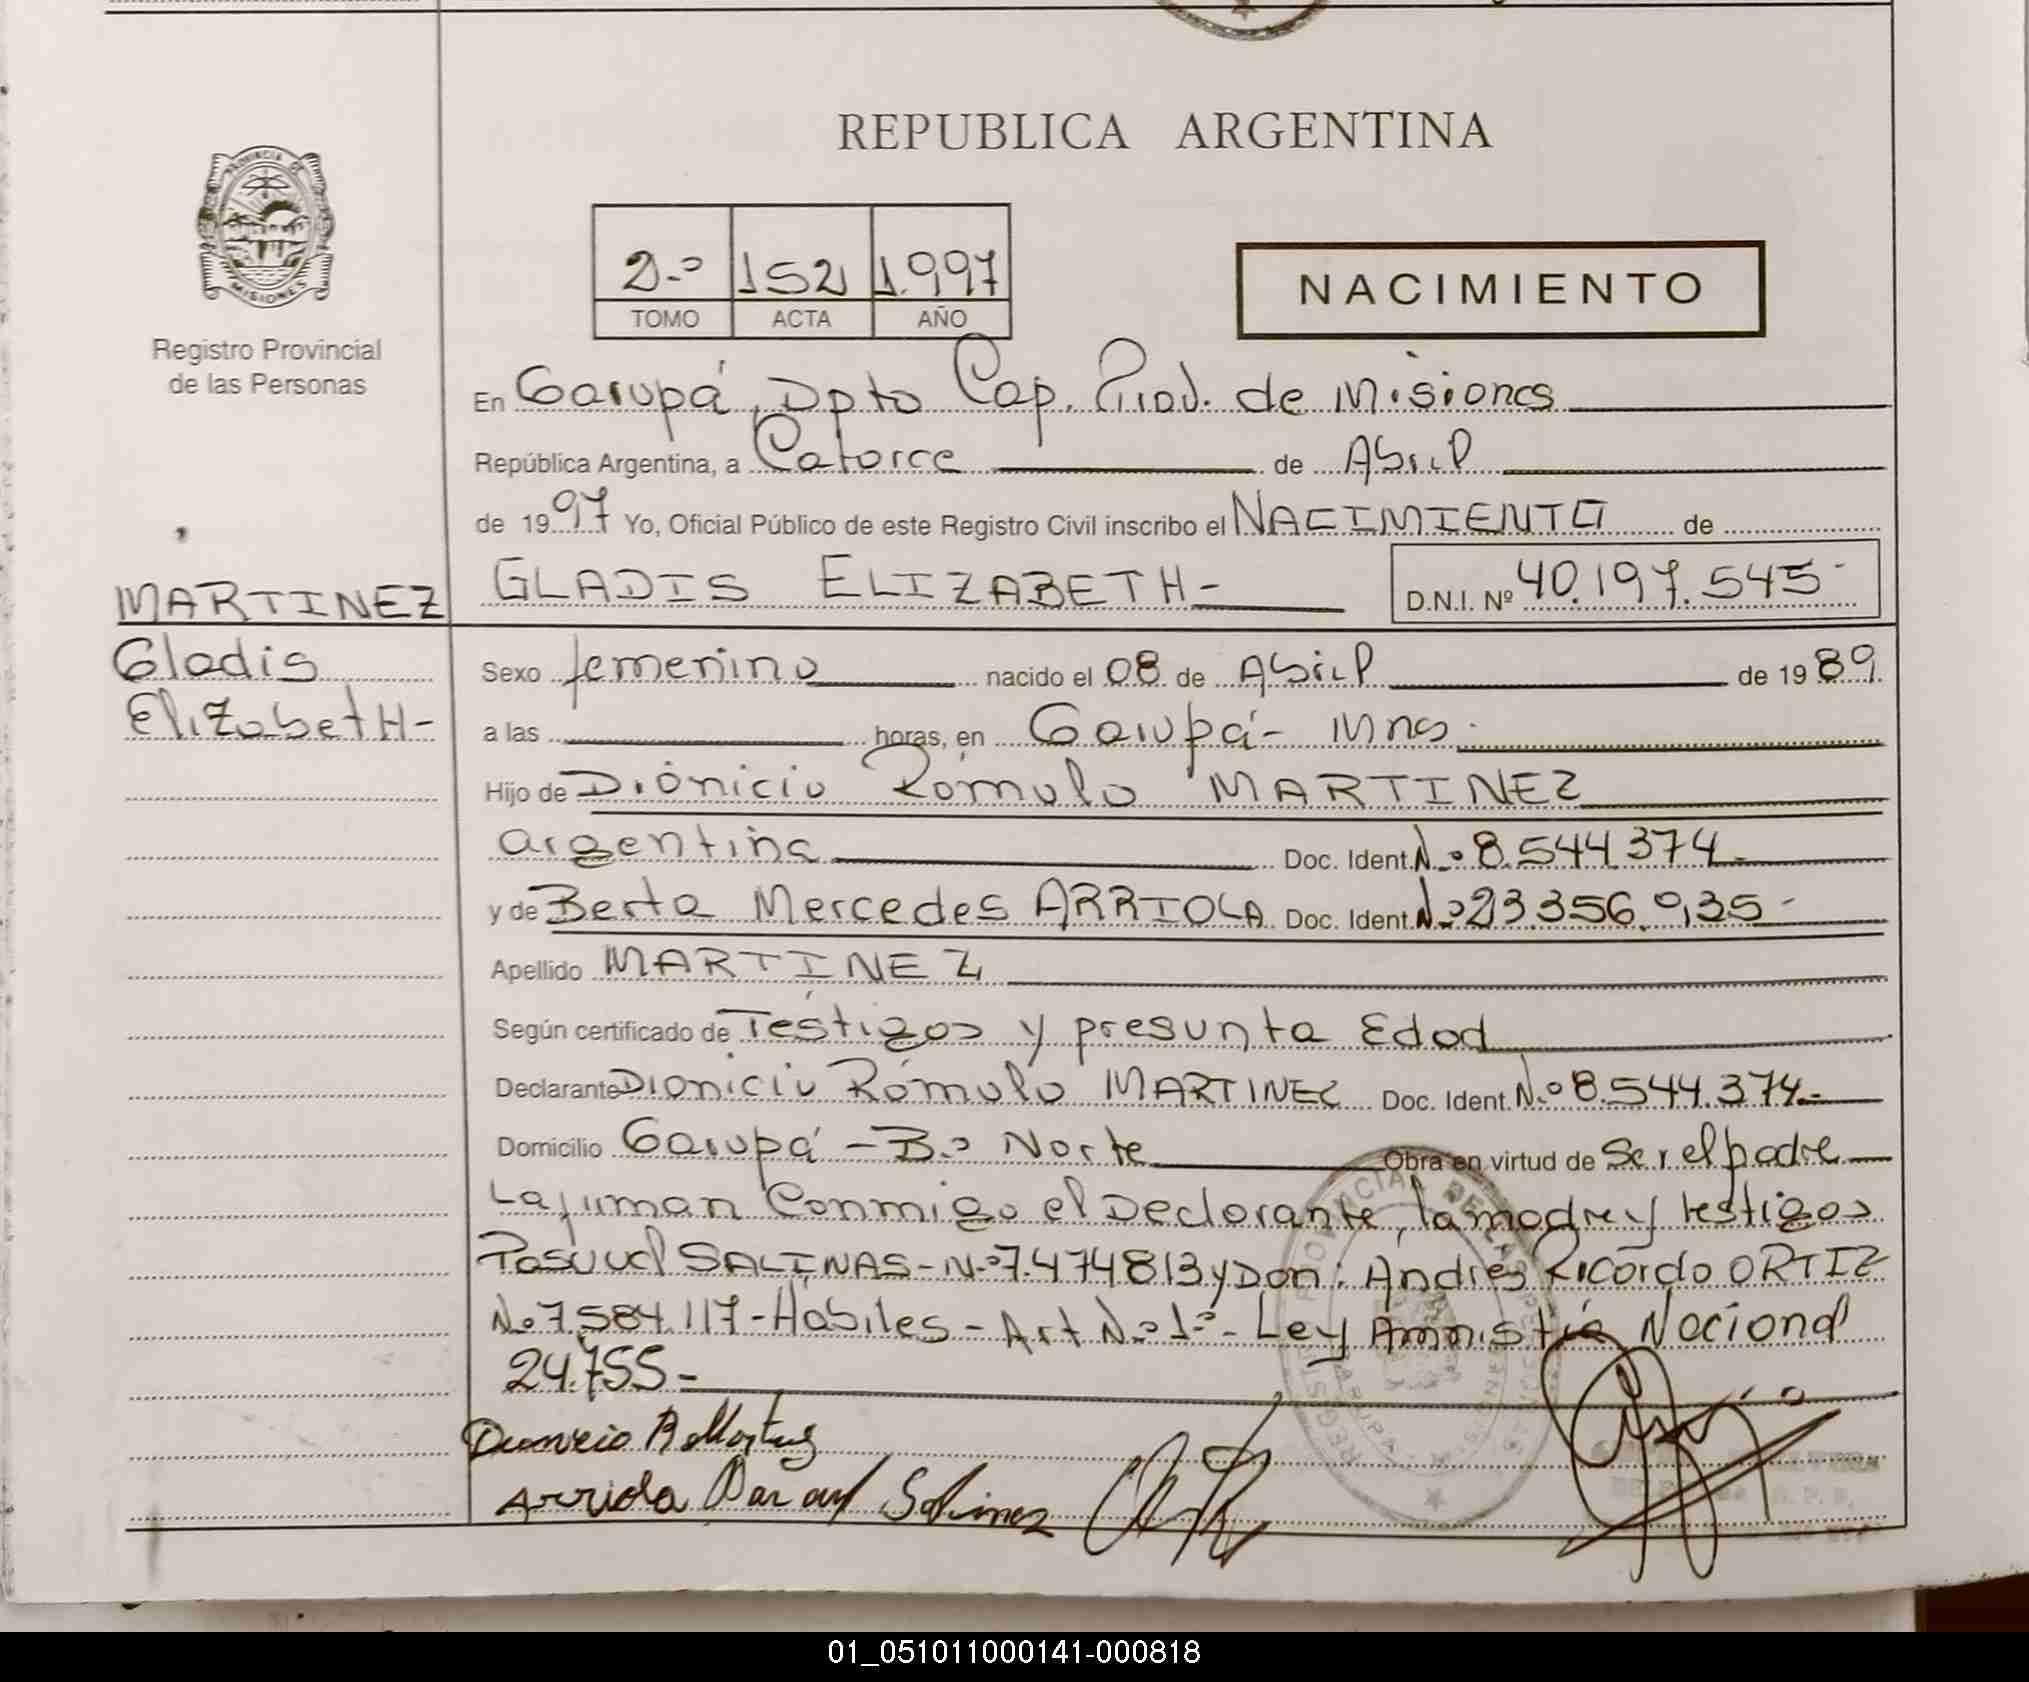 REPUBLICA ARGENTINA
PROVINCIA DE
MISIONES
Registro Provincial
de las Personas
2.º 152 1.997
TOMO ACTA AÑO
NACIMIENTO
En Garupá, Dpto Cap. Prov. de Misiones
República Argentina, a Catorce de Abril
de 1997 Yo, Oficial Público de este Registro Civil inscribo el NACIMIENTO de
GLADIS ELIZABETH- D.N.I. Nº 40.197.545-
MARTINEZ
Gladis
ElizabetH-
Sexo femenino nacido el 08 de Abril de 1989
a las horas, en Garupá- Mnes.
Hijo de Diónicio Rómulo MARTINEZ
argentina Doc. Ident. N.º 8.544.374-
y de Berta Mercedes ARRIOLA Doc. Ident. N.º 23.356.035-
Apellido MARTINEZ
Según certificado de Téstigos y presunta Edad
Declarante Dionicio Rómulo MARTINEZ Doc. Ident. N.º 8.544.374.-
Domicilio Garupá - B.º Norte Obra en virtud de Ser el padre
firman Conmigo el Declarante, la madre y testigos
SALINAS-N.º 7.474813 y Don: Andrés Ricardo ORTIZ
N.º 7.584.117-Hábiles-Art N.º 1º- Ley Amnistía Nacional
24.755-